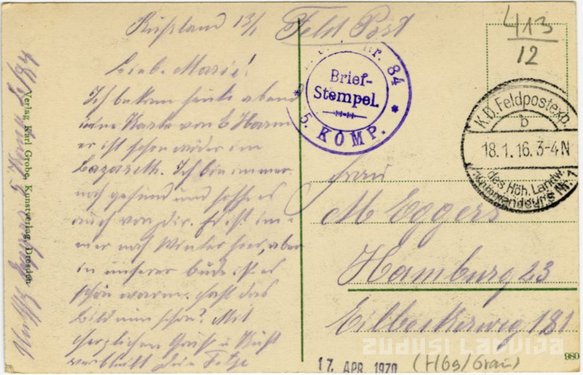 Rußland 13/1
Feld Post
413
12
Nr. 84
Brief-
Stempel.
* 5. KOMP. *
K.D. Feldpostexp.
b
18.1.16. 3-4N
des Höh. Landw.
Kommandeurs Nr. 1
Liebe Marie!
Ich bekam heute abend
Karte von
er ist schon wieder im
Lazareth. Ich bin immer
noch gesund und hoffe es
auch von dir. Es ist im
mer noch Winter hier, aber
in unserer Bude ist es
schön warm. hast das
Bild nun schon? Mit
herzlichem Gruß u Kuß
verbleibt dein
Frau
M Eggers
Hamburg 23
Eilbeckerweg 181
Verlag Karl Grobe, Kunstverlag, Dresden
17. APR. 1970
(Hbg/Grau)
ZUDUSI LATVIJA
960